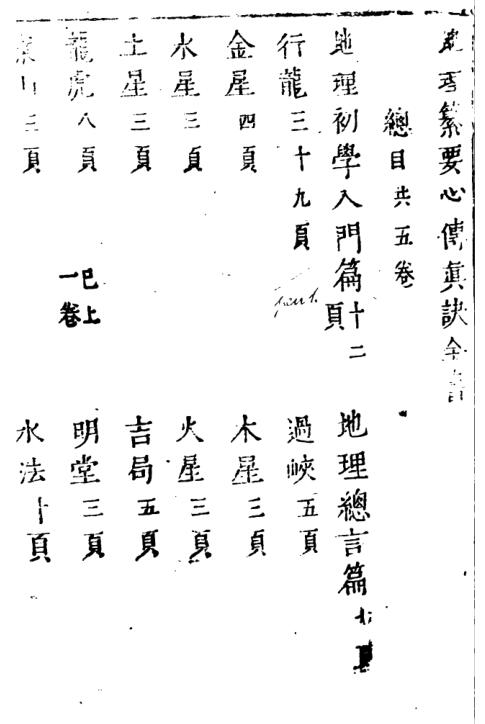 地理纂要心傳眞訣全書
總目共五卷
地理初學入門篇十二頁 地理總言篇七頁
行龍三十九頁 過峽五頁
金星四頁 木星三頁
水星三頁 火星三頁
土星三頁 吉局五頁
龍虎八頁 明堂三頁
已上一卷
山三頁 水法十頁